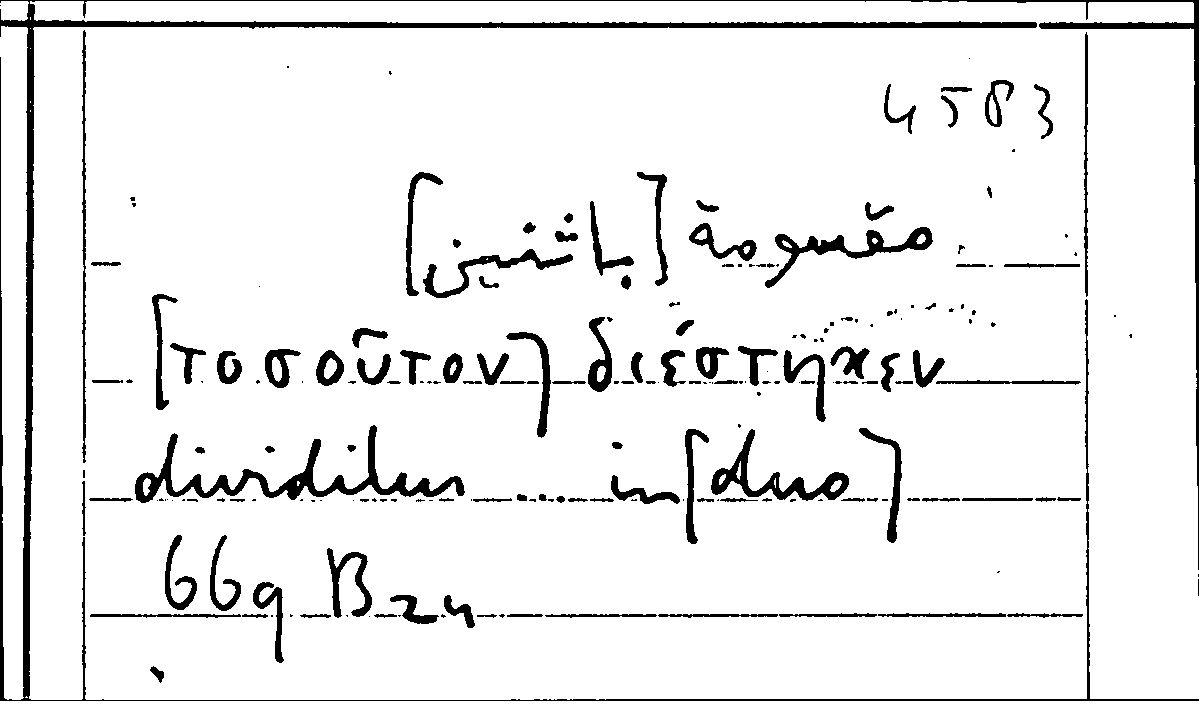 4583
مقسومة [باثنين]
[τοσοῦτον] διέστηκεν
dividitur ... in [duo]
669 B 24